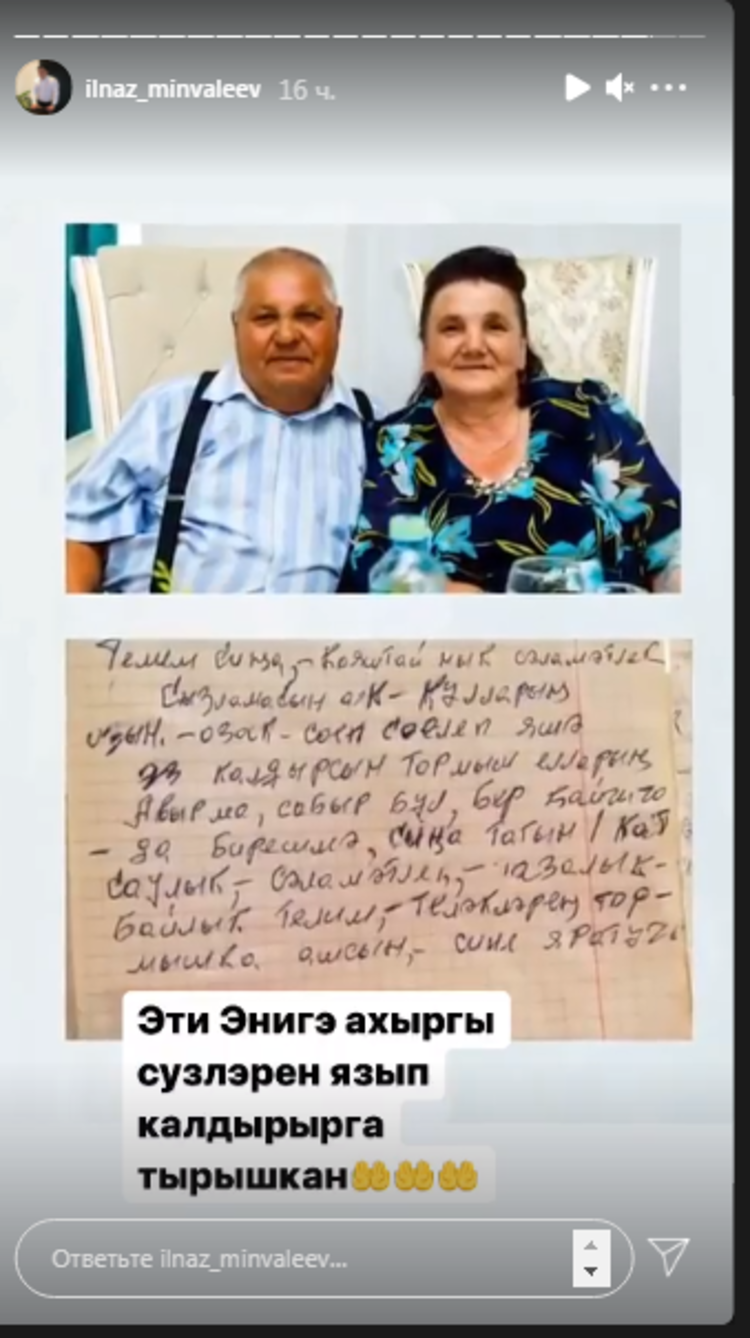 ilnaz_minvaleev 16 ч.
Телим сиңа,- Кояштай нык сәламәтлек
Сызламасын аяк- кулларың
озын. -озак- соен соелеп яшә
эз калдырсын тормыш елларың
Авырма, сабыр бул, бер кайгыга
- да бирешмә, сиңа тагын
саулык,- сәламәтлек,- тазалык-
байлык телим,- теләкләрең тор-
мышка ашсын,- сине яратучы
Эти Энигэ ахыргы
сузлэрен язып
калдырырга
тырышкан🤲🤲🤲
Ответьте ilnaz_minvaleev...